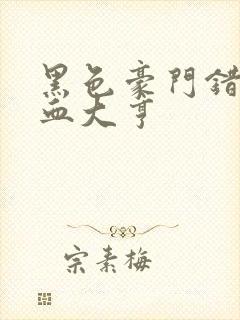 黑色豪門錯
血大亨
宗素梅